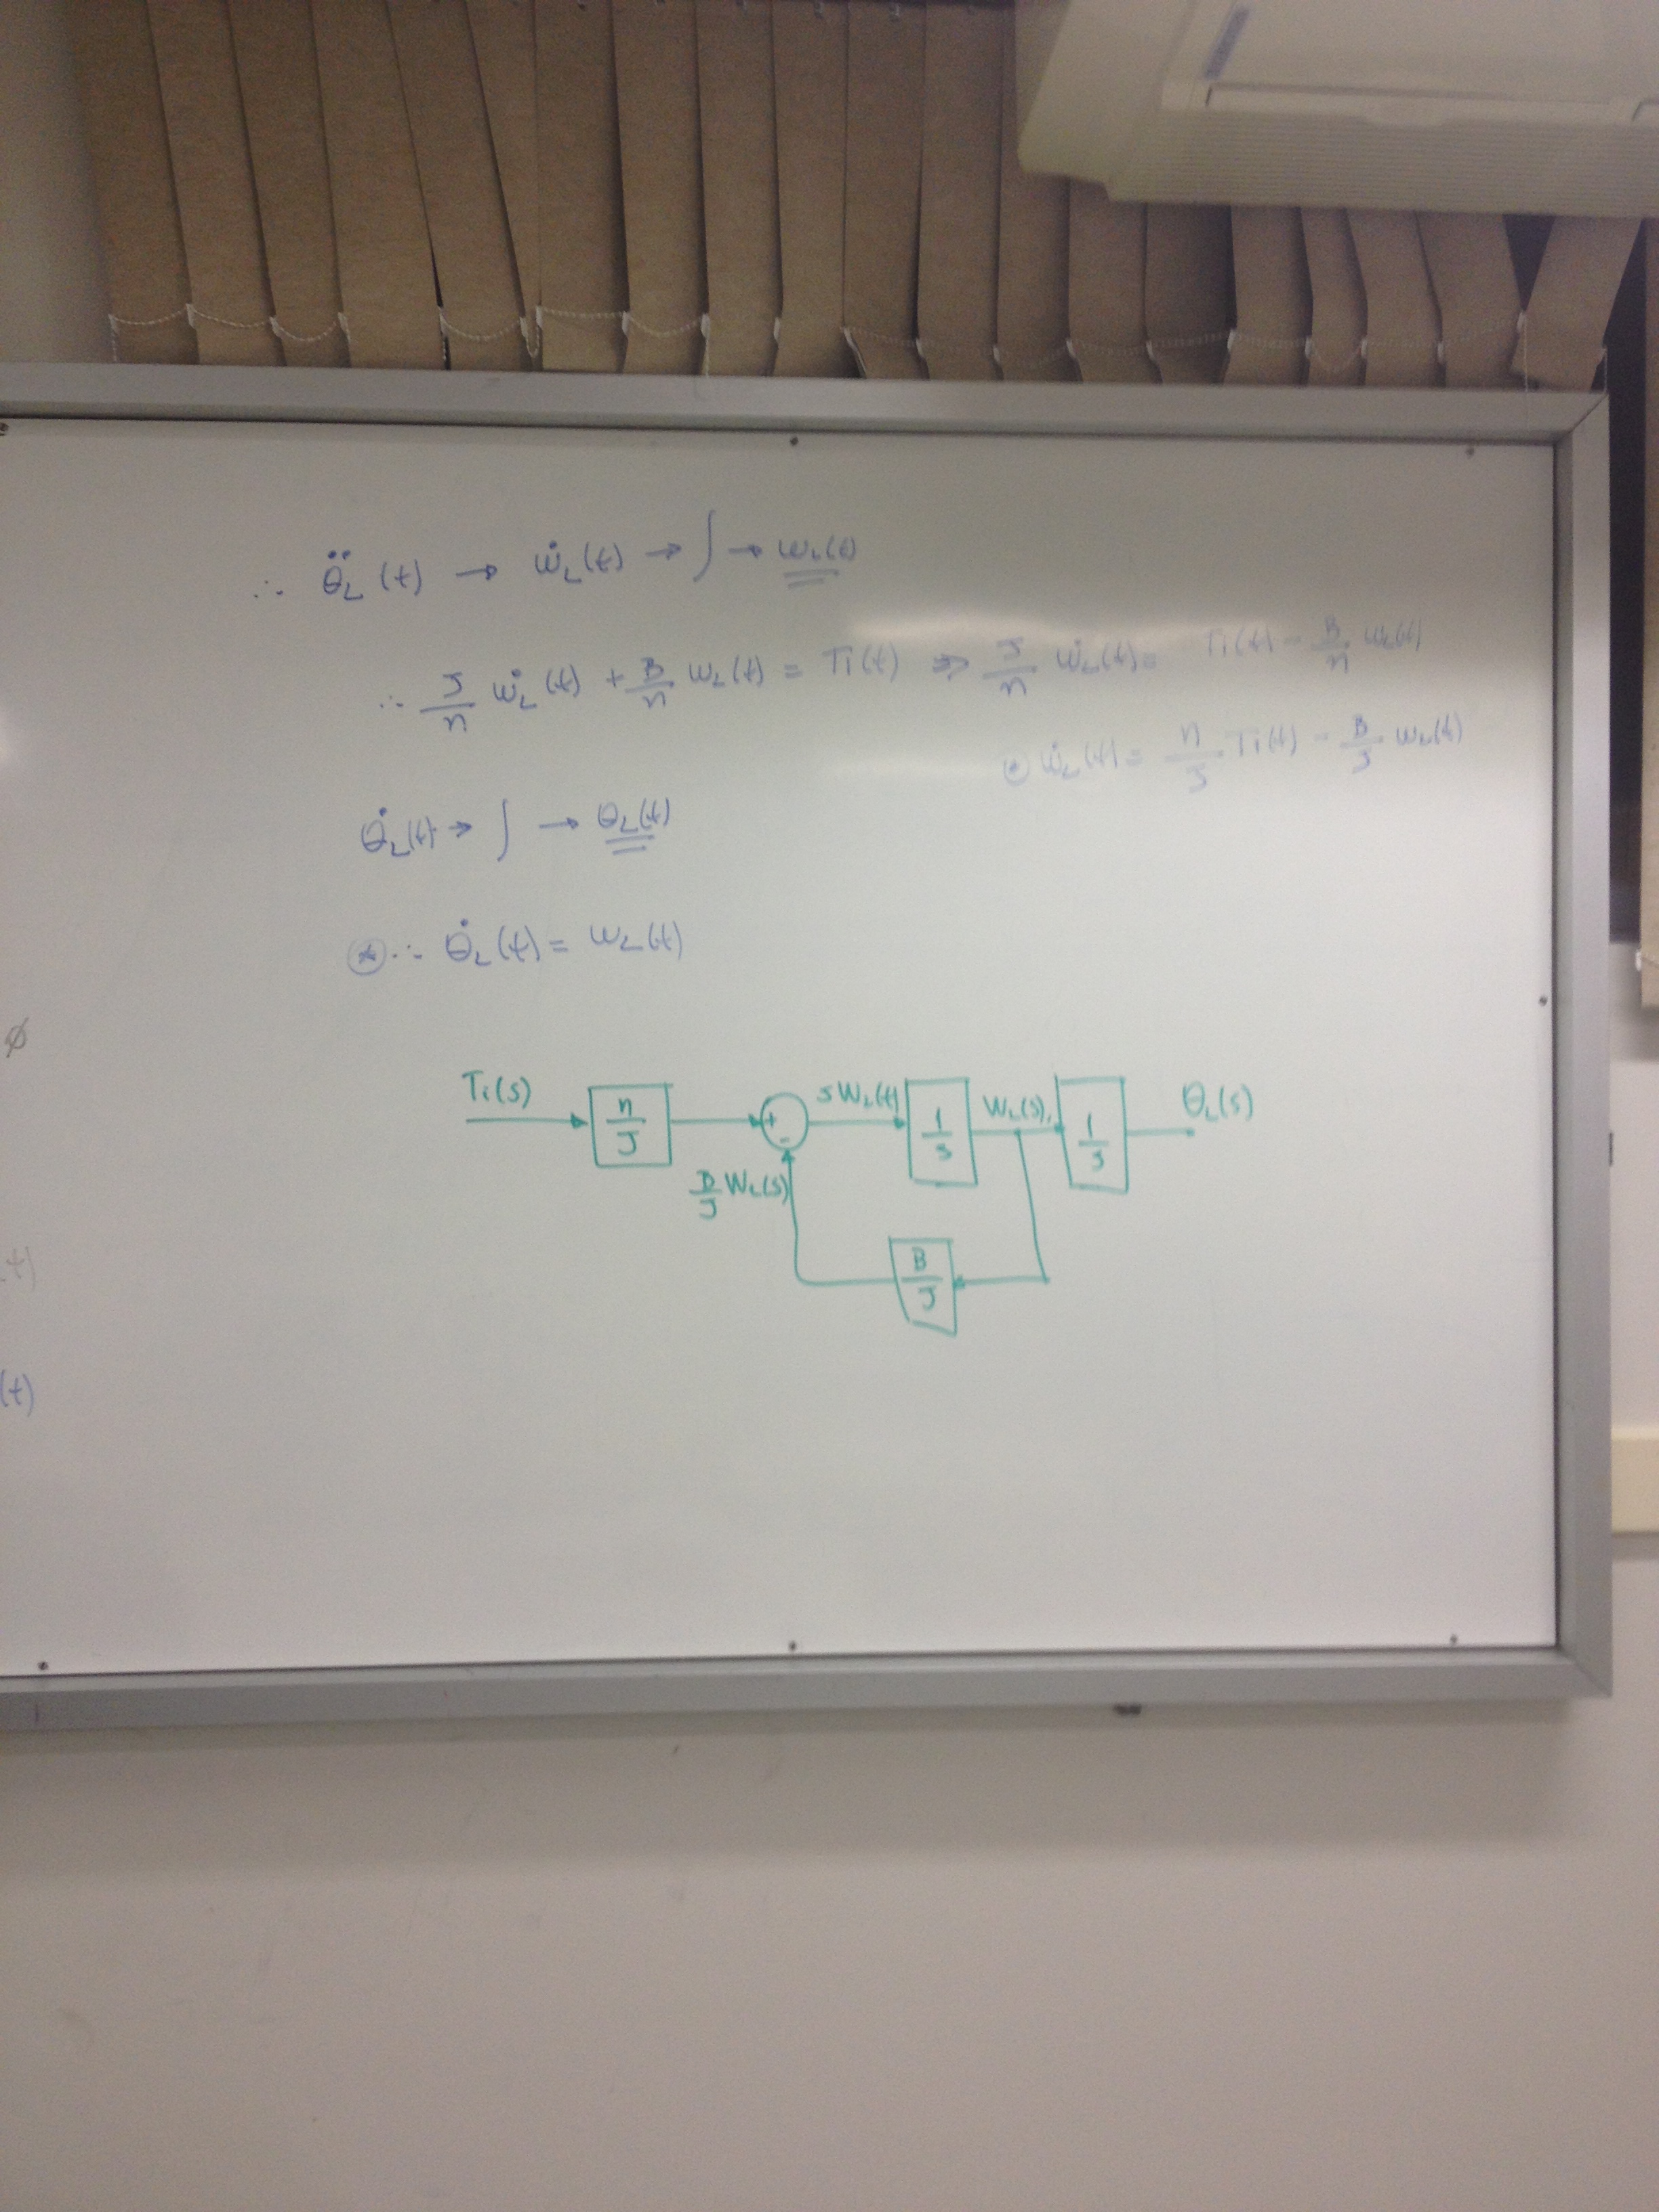 ∴ θ̈L(t) → ẇL(t) → ∫ → wL(t)
∴ J/n ẇL(t) + B/n wL(t) = Ti(t) ⇒ J/n ẇL(t) = Ti(t) - B/n wL(t)
ẇL(t) = n/J Ti(t) - B/J wL(t)
θ̇L(t) → ∫ → θL(t)
⊛ ∴ θ̇L(t) = wL(t)
ϕ
Ti(s) n/J + - sWL(t) 1/s WL(s) 1/s θL(s)
B/J WL(s)
B/J
t)
(t)